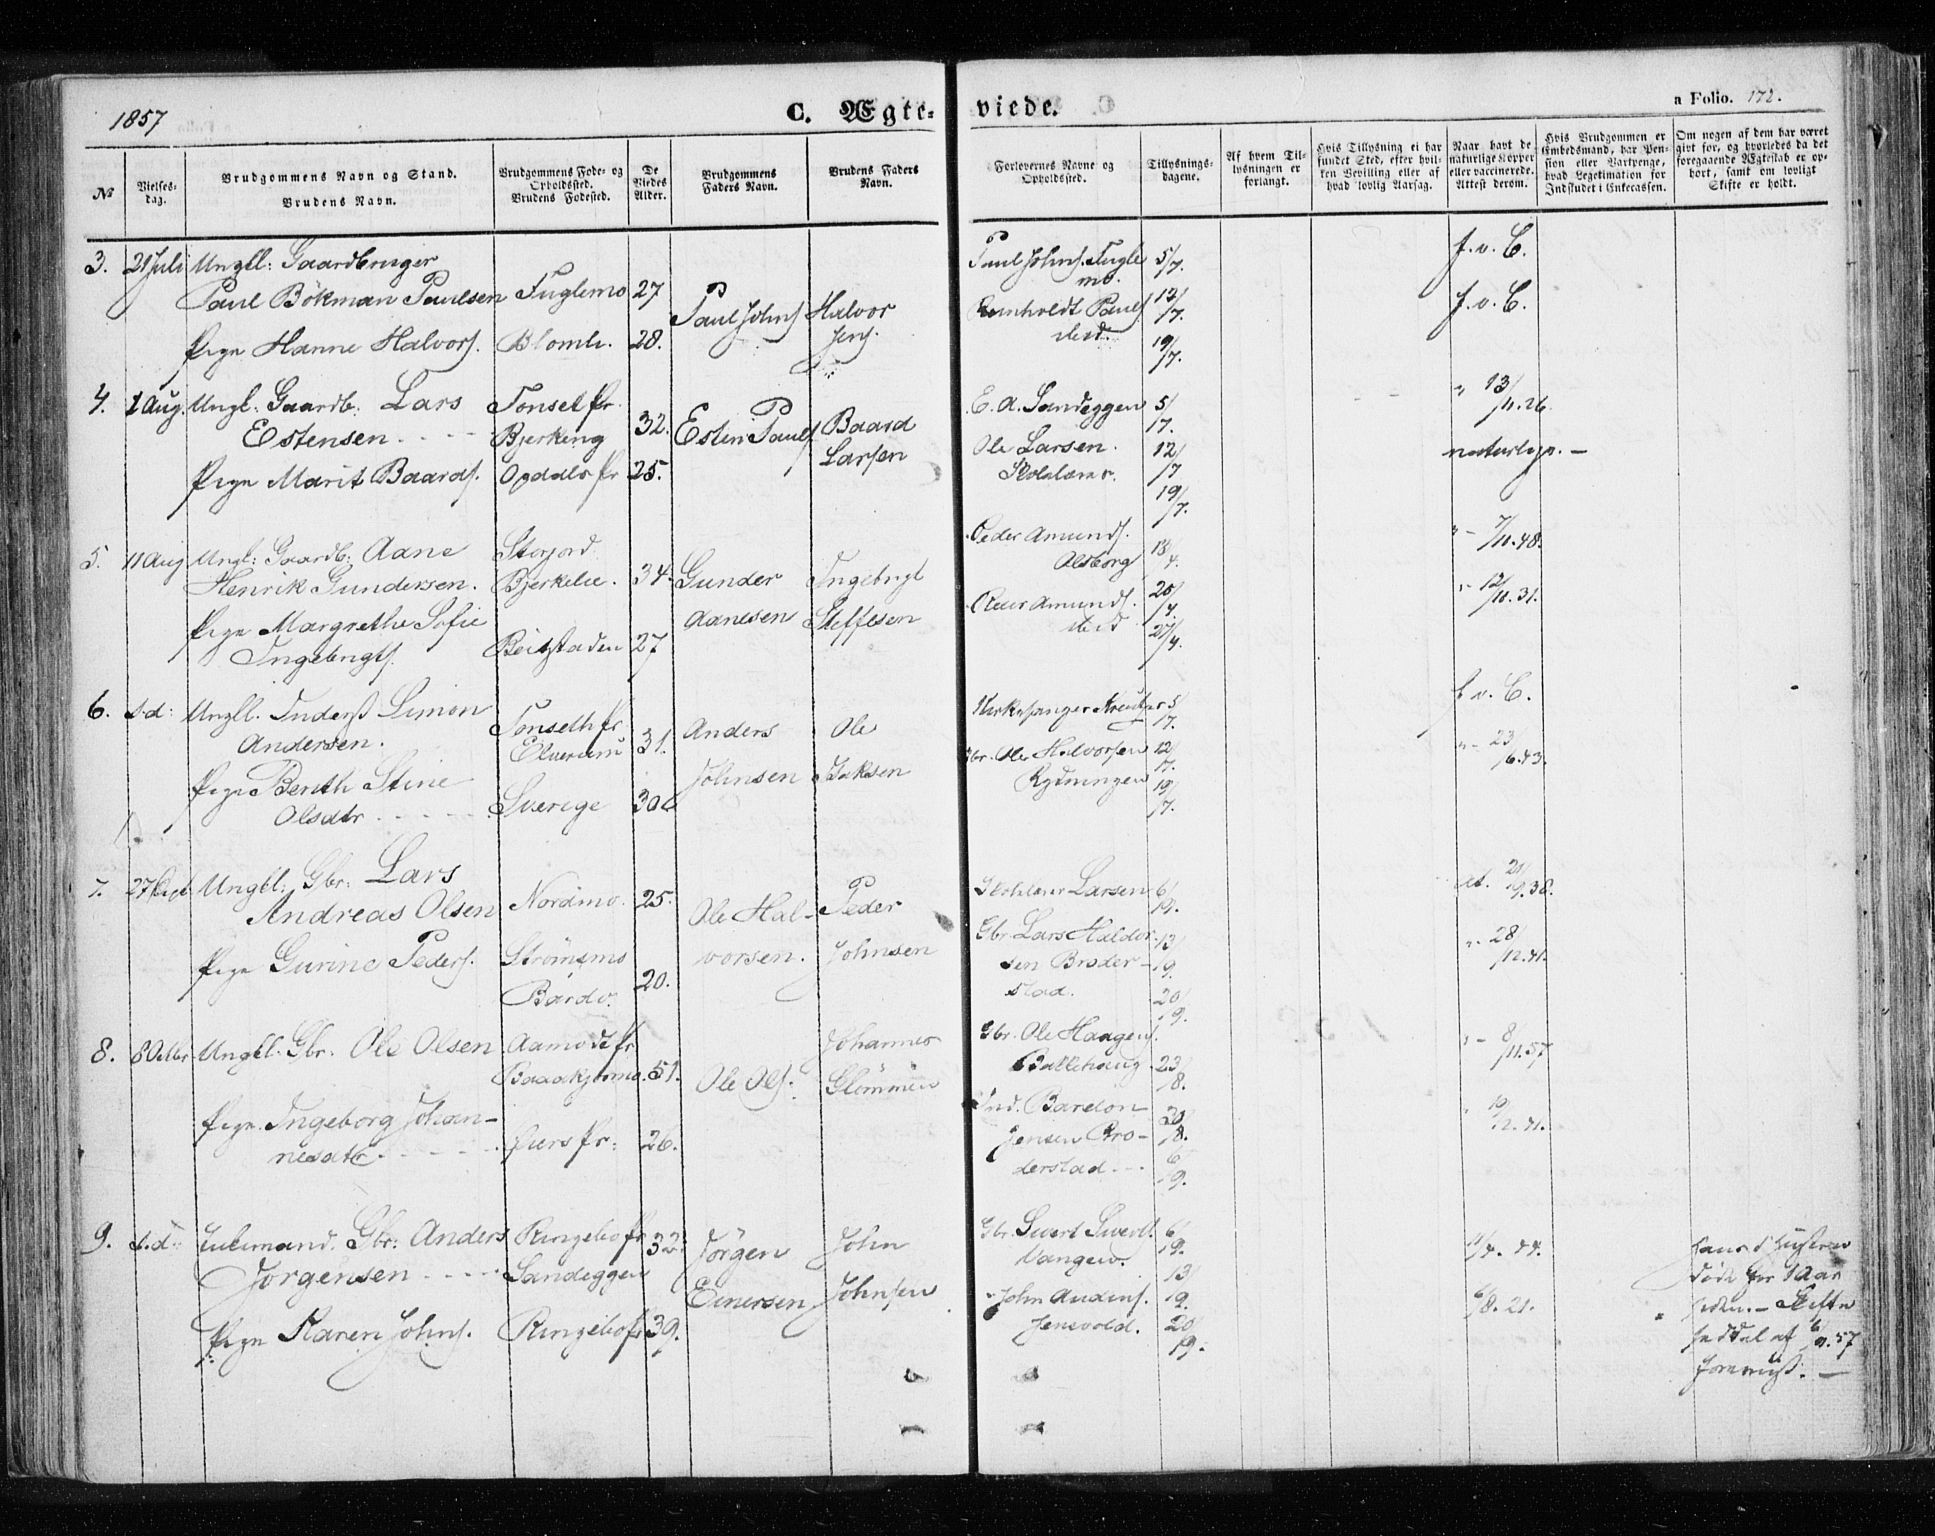 1857
C. Ægte-
viede.
a Folio. 172.
No
Vielses-
dag.
Brudgommens Navn og Stand.
Brudens Navn.
Brudgommens Føde- og
Opholdssted.
Brudens Fødested.
De
Viedes
Alder.
Brudgommens
Faders Navn.
Brudens Faders
Navn.
Forlovernes Navne og
Opholdssted.
Tillysnings-
dagene.
Af hvem Til-
lysningen er
forlangt.
Hvis Tillysning ei har
fundet Sted, efter hvil-
ken Bevilling eller af
hvad lovlig Aarsag.
Naar havt de
naturlige Kopper
eller vaccinerede.
Attest derom.
Hvis Brudgommen er
Embedsmand, har Pen-
sion eller Vartpenge,
hvad Legitimation for
Indskudet i Enkecassen.
Om nogen af dem har været
gift før, og hvorledes da det
foregaaende Ægteskab er op-
hørt, samt om lovligt
Skifte er holdt.
3. 21 Juli Ungkl: Gaardbruger
Paul Bökman Paulsen Fuglemo 27
Paul Johns. Halvor
Jens.
Pige Hanne Halvors. Blomli. 28.
Paul Johns. Fugle
mo.
5/7.
12/7.
Pauls
sted.
19/7.
f. v. C.
f. v. C.
4. 1 Aug. Ungk: Gaardb: Lars
Estensen
Tonset pr.
Bjerkeng 32. Esten Pauls. Baard
Larsen
Pige Marit Baards. Opdals pr 25.
E. A. Sandeggen 5/7.
Ole Larsen. 12/7
Skolelærer. 19/7.
" 13/11.26.
naturlige. —
5. 11 Aug Ungk: Gaardb: Aane
Henrik Gundersen.
Storjord
Bjerkelie. 34. Gunder
Aanesen
Ingebrigt
Steffesen
Pige Margrethe Sofie
Ingebrigts.
Beitstaden 27
Peder Amunds.
Alsborg 18/4.
Amunds.
sted
25/4.
27/4.
" - 7/11.48.
" - 12/10.31.
6. s.d: Ungkl. Inderst Simon
Andersen.
Tonseth pr.
Elverum 31. Anders
Johnsen
Ole
Isaksen
Pige Berith Stine
Olsdtr
Sverige 30
Kirkesanger Kreutzer 5/7.
Gbr. Ole Halvorsen 12/7.
Rydningen 19/7.
f. v. C.
" - 23/6.43.
7. 27 Sept Ungkl: Gbr: Lars
Andreas Olsen Nordmo. 25. Ole Hal-
vorsen.
Peder
Johnsen
Pige Gurine Peders. Strömsmo
Bardo. 20.
Skolelærer Larsen 6/9.
Gbr. Lars Haldor- 13/9.
sen Broder-
stad. 20/9.
At. 21/9.38.
" - 28/12.41.
8. 8 Octbr Ungkl. Gbr. Ole Olsen Aamodt pr
51. Ole Ols. Johannes
Glömmen
Pige. Ingeborg Johan-
nesdtr pr: 26.
Gbr. Ole Haagens.
Bakkehaug 23/8.
Ind. Bardon
Jensen Bro-
derstad
30/8.
6/9.
" - 8/11.57
" 19/12.41.
9. s.d: Enkemand. Gbr: Anders
Jørgensen
Ringebo pr
Sandeggen 32 Jørgen
Einersen
John
Johnsen
Pige Karen Johns. Ringebo pr 39.
Gbr. Sivert Sivert. 6/9.
Vangen. 13/9.
John Audens.
Jensvold. 20/9.
11/4. 44.
6/8. 21.
Hans Hustru
døde for 1 Aar
siden. — Skifte
seddel af 6/9.57
forevist. —